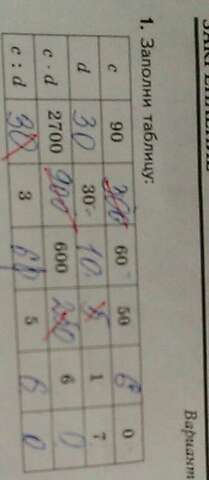 Вариант
1. Заполни таблицу:
c 90 60 50 6 0
d 30 30 10 5 1 7
c · d 2700 900 600 250 6 0
c : d 90 3 60 5 6 0